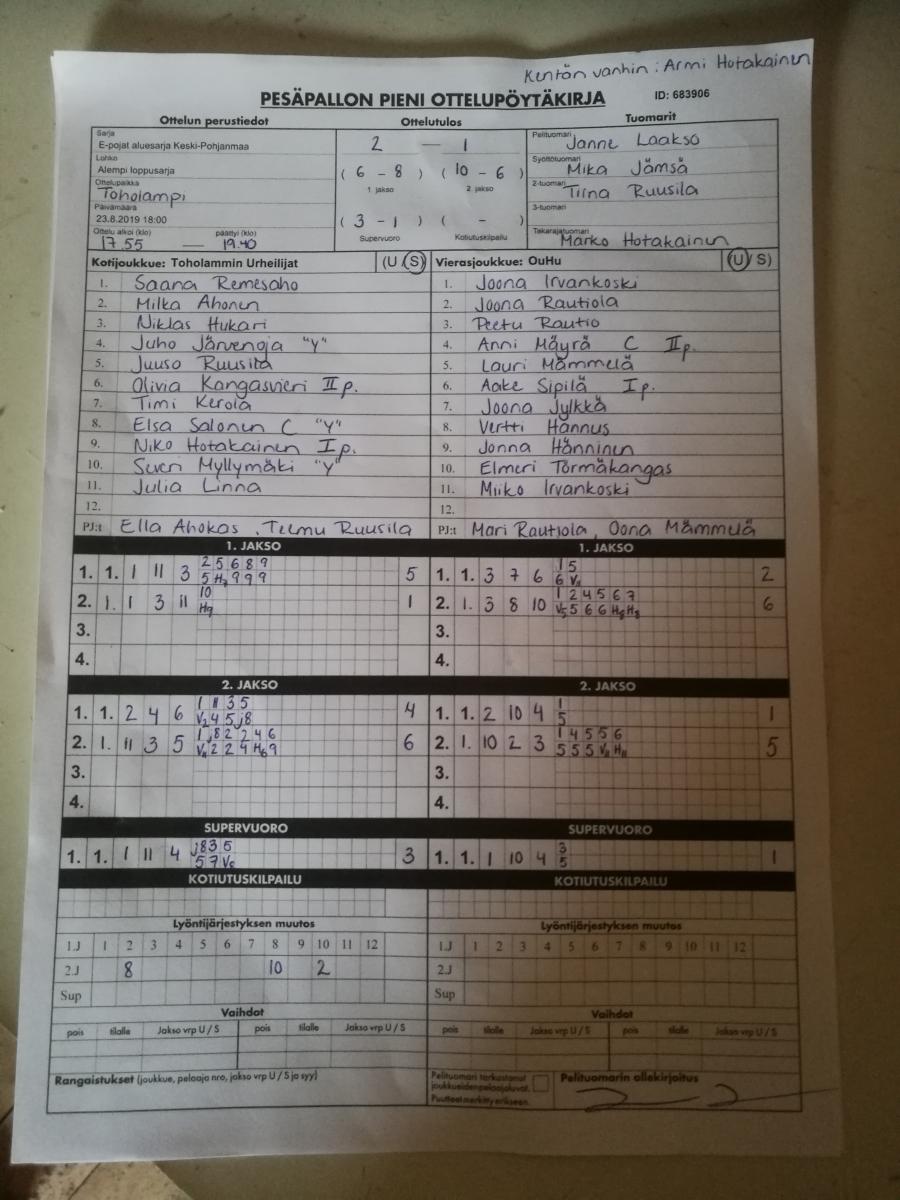 Kentän vanhin : Armi Hotakainen
PESÄPALLON PIENI OTTELUPÖYTÄKIRJA ID: 683906
Ottelun perustiedot Ottelutulos Tuomarit
Sarja
E-pojat aluesarja Keski-Pohjanmaa
Lohko
Alempi loppusarja
Ottelupaikka
Toholampi
Päivämäärä
23.8.2019 18:00
Ottelu alkoi (klo) päättyi (klo)
17.55 — 19.40
2 — 1
( 6 - 8 ) ( 10 - 6 )
1. jakso 2. jakso
( 3 - 1 ) ( - )
Supervuoro Kotiutuskilpailu
Pelituomari Janne Laakso
Syöttötuomari Mika Jämsä
2-tuomari Tiina Ruusila
3-tuomari
Takarajatuomari Marko Hotakainen
Kotijoukkue: Toholammin Urheilijat (U / S)
1. Saana Remesaho
2. Milka Ahonen
3. Niklas Hukari
4. Juho Järvenoja "Y"
5. Juuso Ruusila
6. Olivia Kangasvieri II p.
7. Timi Kerola
8. Elsa Salonen C "Y"
9. Niko Hotakainen I p.
10. Severi Myllymäki "Y"
11. Julia Linna
12.
PJ:t Ella Ahokas , Teemu Ruusila
Vierasjoukkue: OuHu (U / S)
1. Joona Irvankoski
2. Joona Rautiola
3. Peetu Rautio
4. Anni Mäyrä C II p.
5. Lauri Mämmelä
6. Aake Sipilä I p.
7. Joona Jylkkä
8. Vertti Hannus
9. Jonna Hänninen
10. Elmeri Törmäkangas
11. Miiko Irvankoski
12.
PJ:t Mari Rautiola , Oona Mämmelä
1. JAKSO 1. JAKSO
2 5 6 8 9
1. 1. 1 11 3 5 H2 9 9 9 5
10
2. 1. 1 3 11 H9 1
3.
4.
1 5
1. 1. 3 7 6 6 V11 2
1 2 4 5 6 7
2. 1. 3 8 10 V5 5 6 6 H8 H8 6
3.
4.
2. JAKSO 2. JAKSO
1 11 3 5
1. 1. 2 4 6 V2 4 5 j8 4
1 j8 2 2 4 6
2. 1. 11 3 5 V11 2 2 4 H6 9 6
3.
4.
1
1. 1. 2 10 4 5 1
1 4 5 5 6
2. 1. 10 2 3 5 5 5 V11 H11 5
3.
4.
SUPERVUORO SUPERVUORO
j8 3 5
1. 1. 1 11 4 5 7 V6 3
3
1. 1. 1 10 4 5 1
KOTIUTUSKILPAILU KOTIUTUSKILPAILU
Lyöntijärjestyksen muutos
1.J 1 2 3 4 5 6 7 8 9 10 11 12
2.J 8 10 2
Sup
Lyöntijärjestyksen muutos
1.J 1 2 3 4 5 6 7 8 9 10 11 12
2.J
Sup
Vaihdot Vaihdot
pois tilalle Jakso vrp U / S pois tilalle Jakso vrp U / S
pois tilalle Jakso vrp U / S pois tilalle Jakso vrp U / S
Rangaistukset (joukkue, pelaaja nro, jakso vrp U / S ja syy)
Pelituomari tarkastanut
joukkueiden pelaajaluvat.
Puutteet merkitty erikseen.
Pelituomarin allekirjoitus